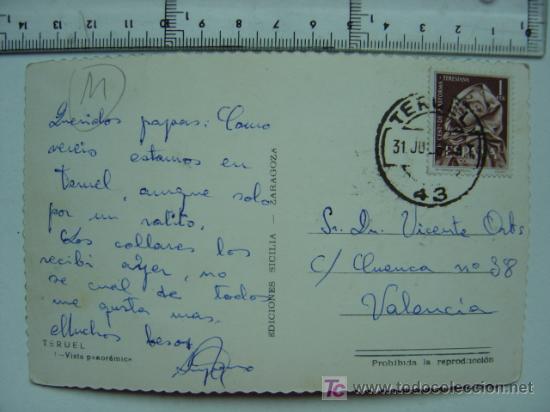 14 13 12 11 10 9 8 7 6 5 4 3 2 1
M
Queridos papas: Como
vereis estamos en
Teruel, aunque solo
por un ratito.
Los collares los
recibi ayer, no
se cual de todos
me gusta mas.
Muchos besos
TERUEL
1-Vista panorámica
EDICIONES SICILIA - ZARAGOZA
TERUEL
31 JUL
43
IV CENT. DE LA REFORMA
TERESIANA
Sr. Dn. Vicente
C/ Cuenca nº 38
Valencia
Prohibida la reproducción
todocoleccion
www.todocoleccion.net